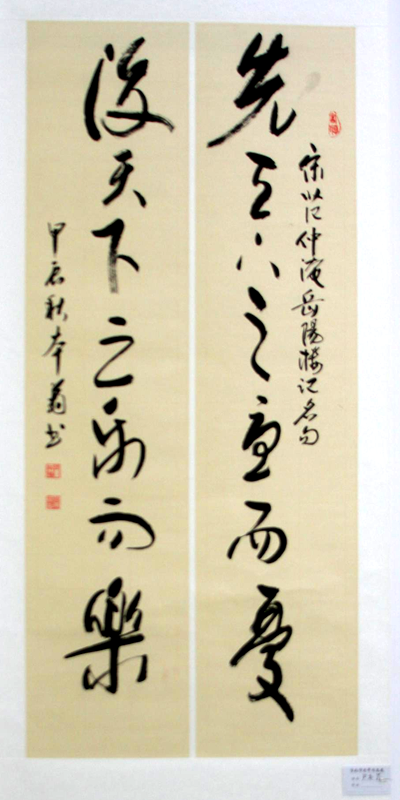 宋范仲淹岳陽樓記名句
先天下之憂而憂
後天下之樂而樂
甲辰秋本书